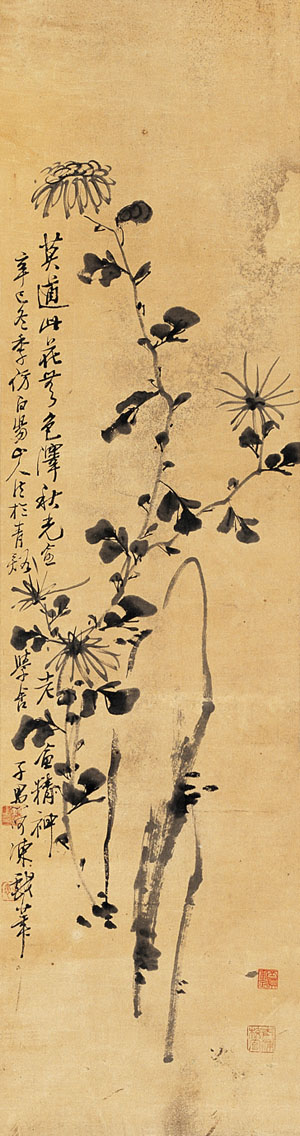 莫道此花無色澤秋光愈老愈精神
辛巳冬季仿白陽山人法於青谿
學舍子男呵凍